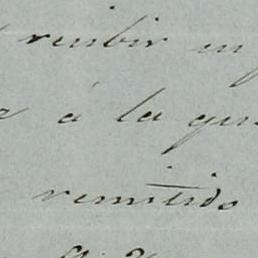 recibir en
á la que
remitido